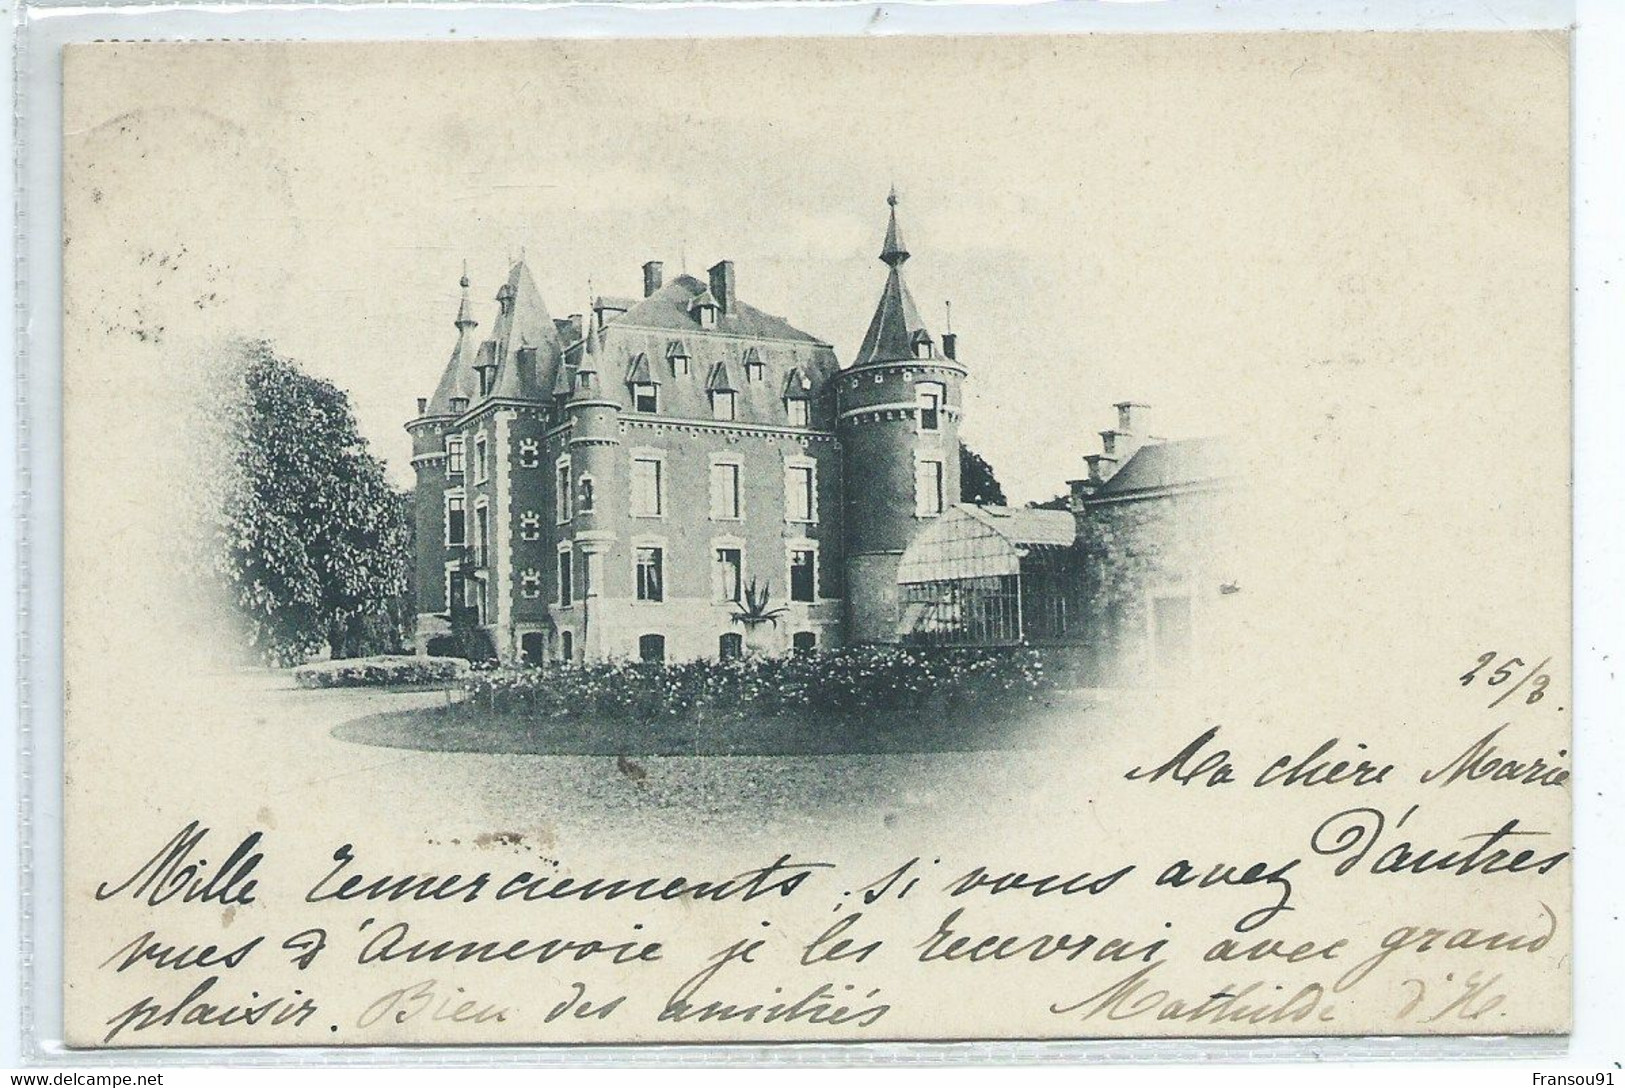 25/8.
Ma chère Marie
Mille remerciements, si vous avez d'autres
vues d'Annevoie je les recevrai avec grand
plaisir. Bien des amitiés Mathilde d'H.
delcampe.net
Fransou91